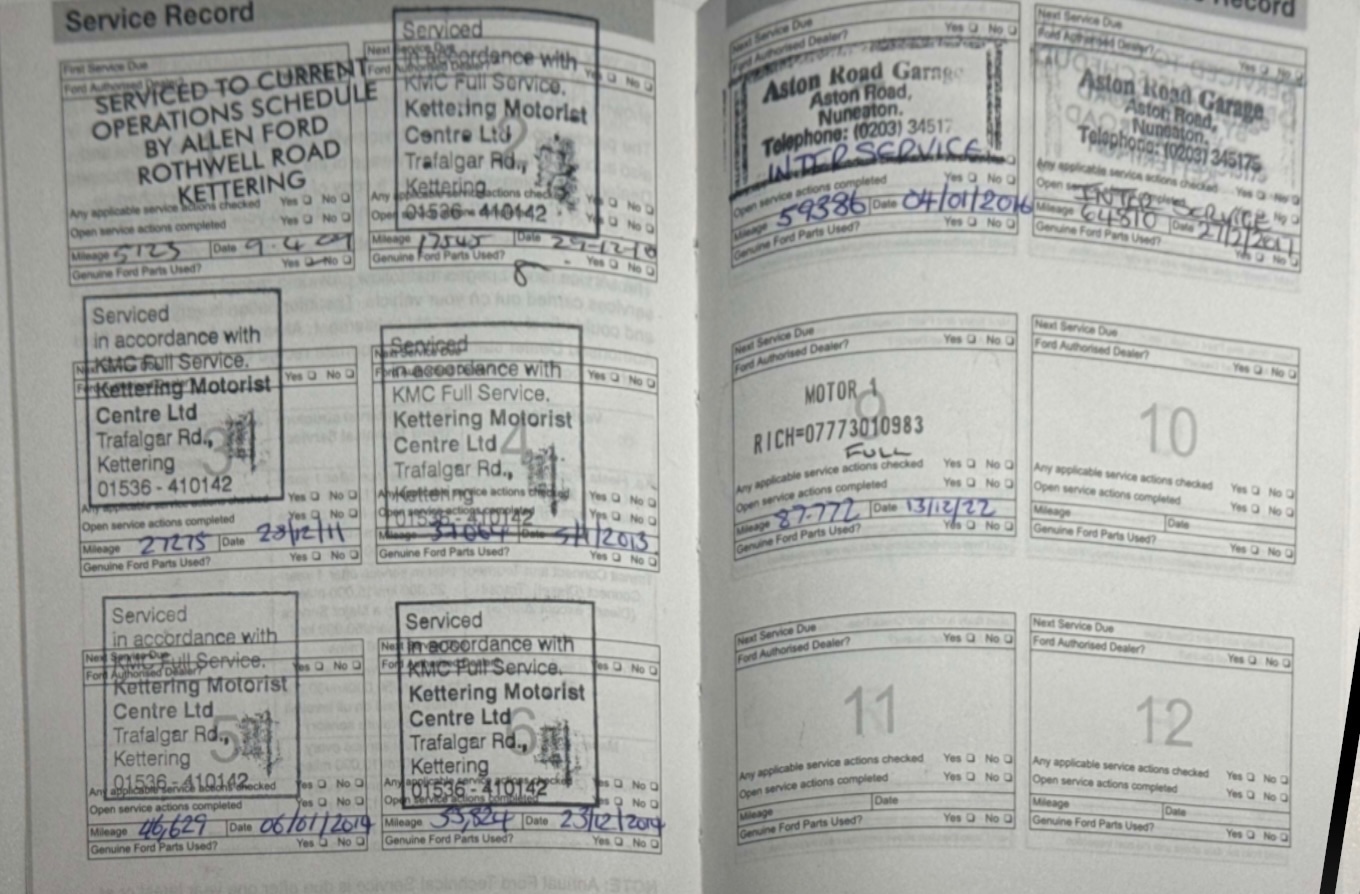 Service Record
First Service Due
Ford Authorised Dealer?
SERVICED TO CURRENT
OPERATIONS SCHEDULE
BY ALLEN FORD
ROTHWELL ROAD
KETTERING
Any applicable service actions checked Yes No
Open service actions completed Yes No
Mileage 5123 Date 9.4.09
Genuine Ford Parts Used? Yes No
Next Service Due
Serviced
in accordance with
Yes No
KMC Full Service.
Kettering Motorist
Centre Ltd
2
Trafalgar Rd.,
Kettering
Any applicable service actions checked Yes No
01536 - 410142
Yes No
Mileage 17545 Date
Genuine Ford Parts Used? Yes No
Serviced
in accordance with
KMC Full Service.
Yes No
Kettering Motorist
Centre Ltd
3
Trafalgar Rd.,
Kettering
01536 - 410142
Yes No
Open service actions completed Yes No
Mileage 27275 Date 28/12/11
Genuine Ford Parts Used? Yes No
Serviced
Next Service Due
in accordance with
Yes No
KMC Full Service.
Kettering Motorist
Centre Ltd
4
Trafalgar Rd.,
Kettering
Any applicable service actions checked Yes No
Open service actions completed Yes No
01536 - 410142
Mileage Date 5/1/2013
Genuine Ford Parts Used? Yes No
Serviced
in accordance with
Next Service Due
KMC Full Service.
Ford Authorised Dealer? Yes No
Kettering Motorist
Centre Ltd
5
Trafalgar Rd.,
Kettering
01536 - 410142
Any applicable service actions checked Yes No
Open service actions completed Yes No
Mileage 46,629 Date 06/01/2014
Genuine Ford Parts Used? Yes No
Serviced
in accordance with
KMC Full Service.
Yes No
Kettering Motorist
Centre Ltd
6
Trafalgar Rd.,
Kettering
Any applicable service actions checked Yes No
01536 - 410142
Open service actions completed Yes No
Mileage 53,824 Date 23/12/2014
Genuine Ford Parts Used? Yes No
Record
Next Service Due
Ford Authorised Dealer? Yes No
Aston Road Garage
Aston Road,
Nuneaton.
Telephone: (0203) 34517
INTER SERVICE
Open service actions completed
Mileage 59386 Date 04/01/2016
Genuine Ford Parts Used? Yes No
Next Service Due
Ford Authorised Dealer?
Yes No
Aston Road Garage
Aston Road,
Nuneaton.
Telephone: (0203) 345175
Any applicable service actions checked Yes No
INTER SERVICE
Mileage 64810 Date
Genuine Ford Parts Used? Yes No
Next Service Due
Ford Authorised Dealer? Yes No
MOTOR 1
9
RICH=07773010983
FULL
Any applicable service actions checked Yes No
Open service actions completed Yes No
Mileage 87.772 Date 13/12/22
Genuine Ford Parts Used? Yes No
Next Service Due
Ford Authorised Dealer? Yes No
10
Any applicable service actions checked Yes No
Open service actions completed Yes No
Mileage Date
Genuine Ford Parts Used? Yes No
Next Service Due
Ford Authorised Dealer? Yes No
11
Any applicable service actions checked Yes No
Open service actions completed Yes No
Mileage Date
Genuine Ford Parts Used? Yes No
Next Service Due
Ford Authorised Dealer? Yes No
12
Any applicable service actions checked Yes No
Open service actions completed Yes No
Mileage Date
Genuine Ford Parts Used? Yes No
NOTE: Annual Ford Technical Service is due after one year